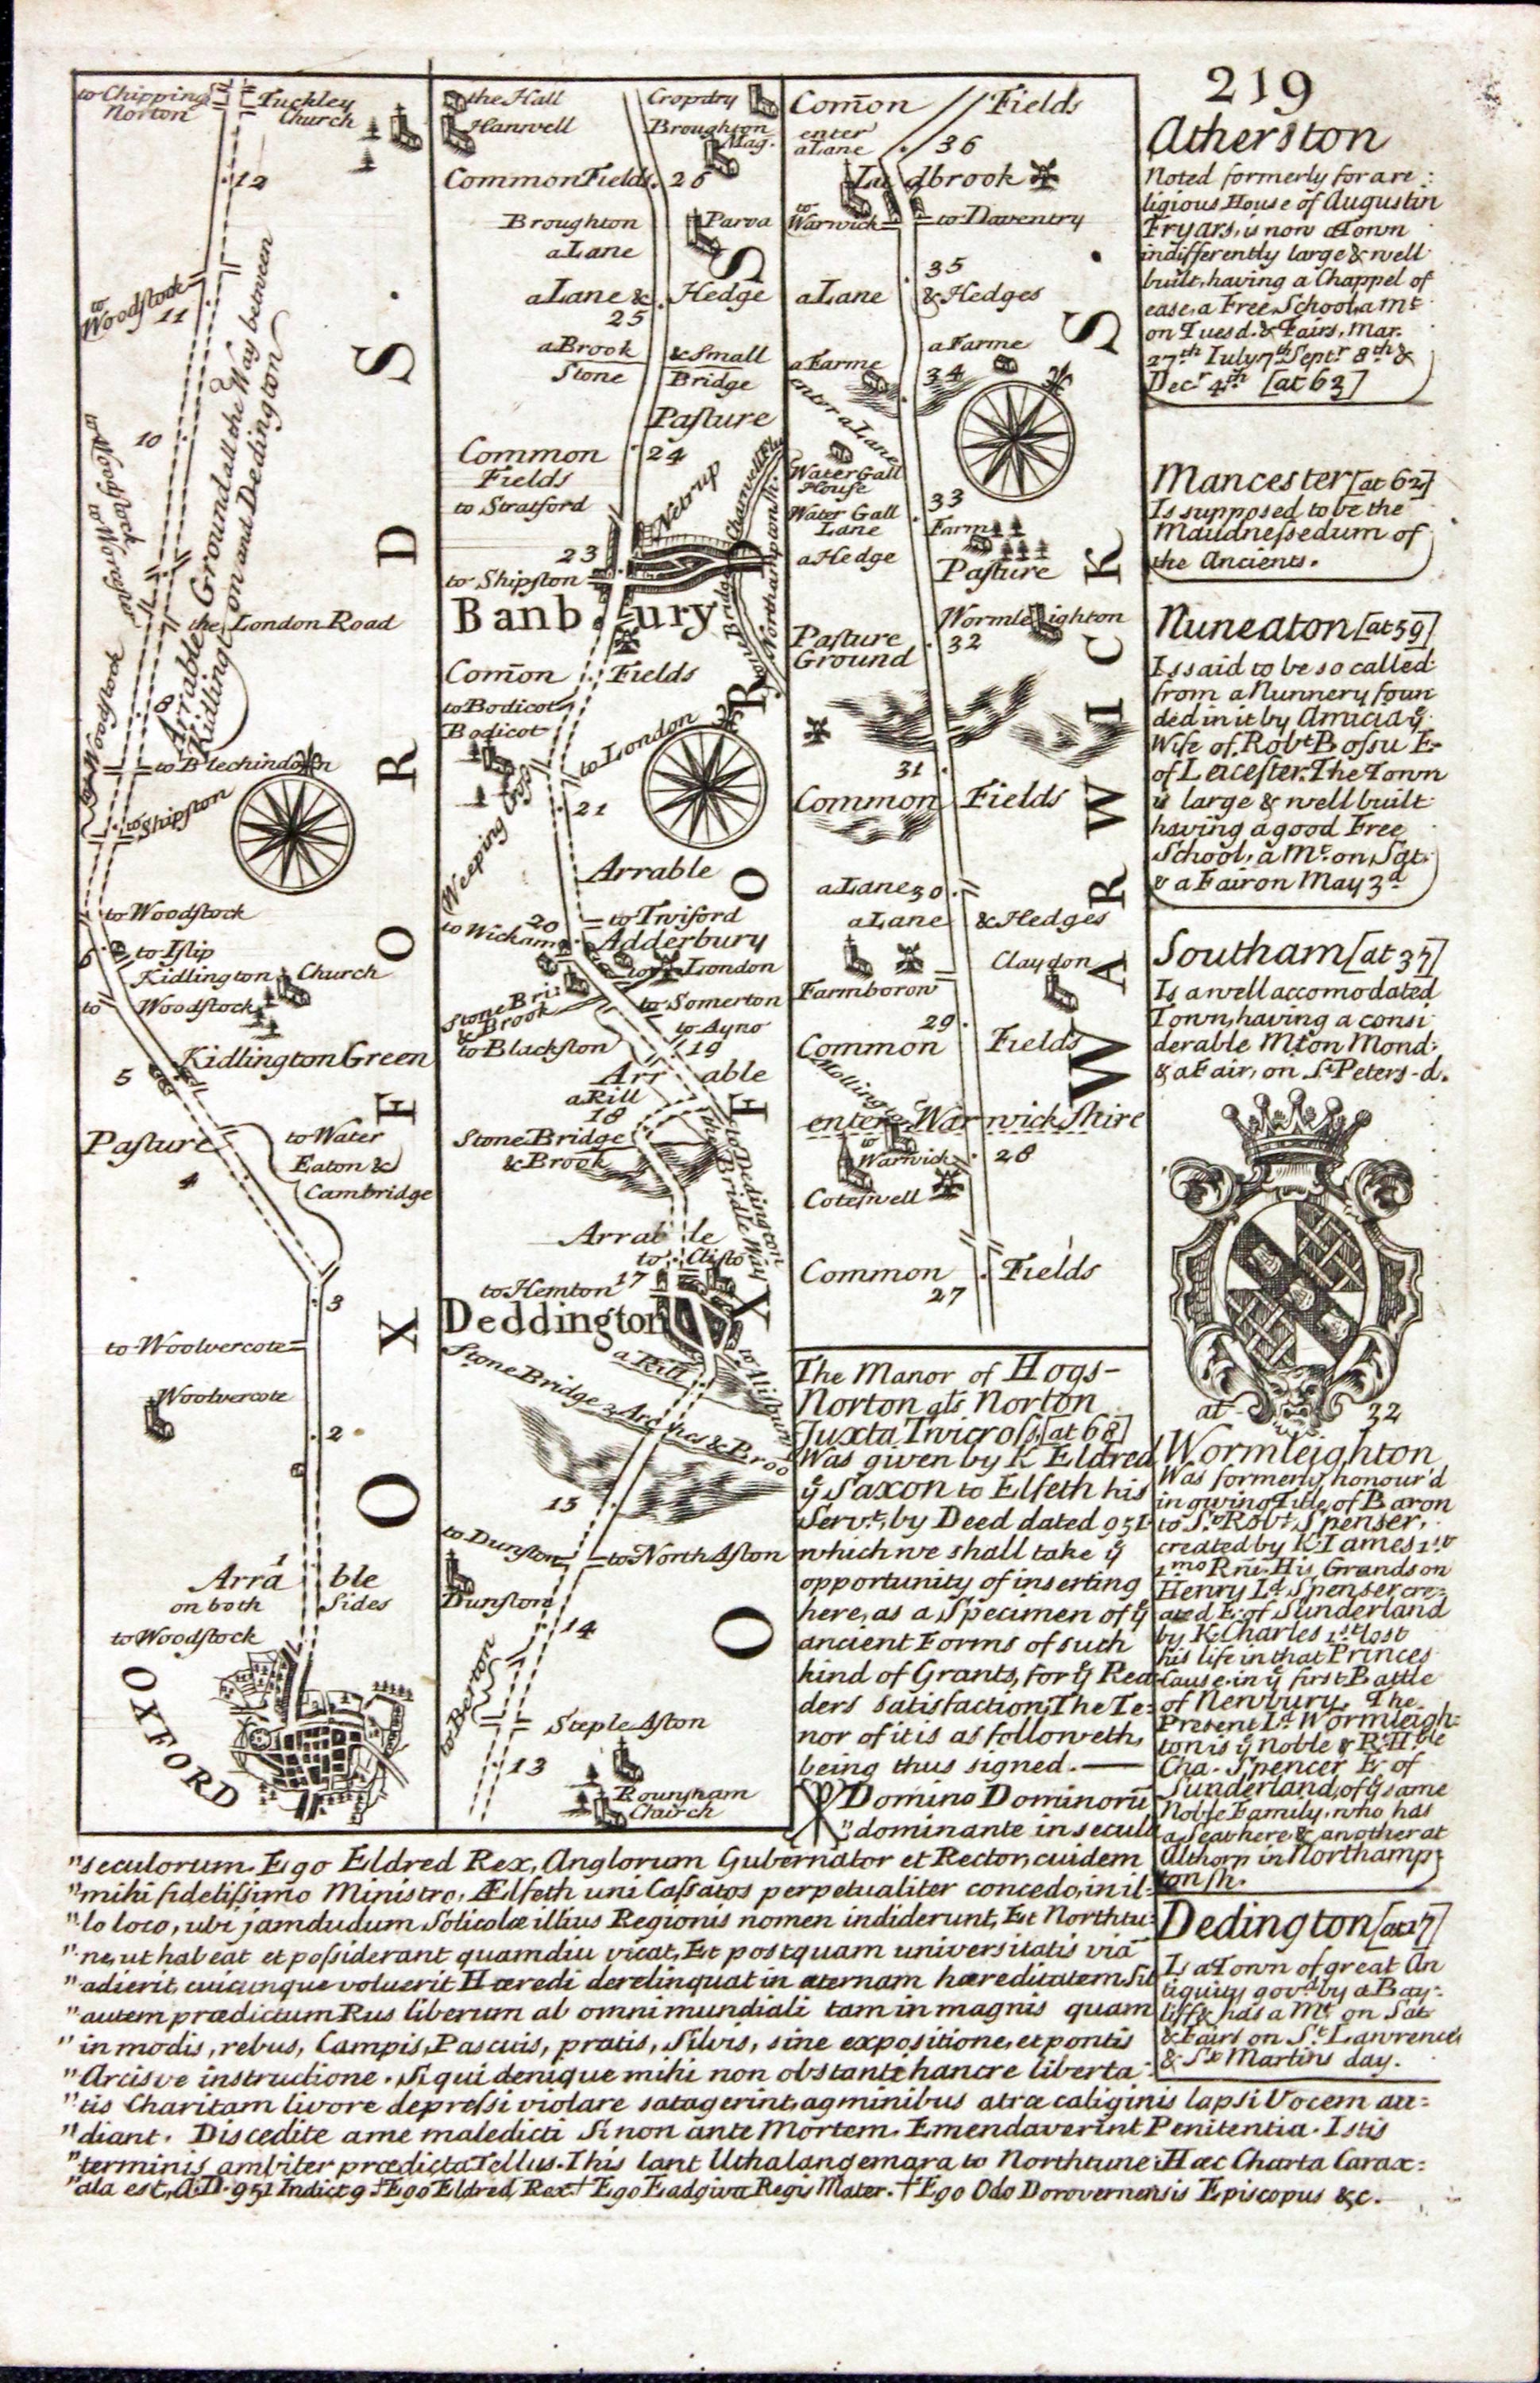 219
to Chipping
Norton
Tuckley
Church
12
to
Woodstock
11
10
to Woodstock
to Worcester
Arrable Ground all the Way between
Kidlington and Dedington
the London Road
8
to Woodstock
to Blechindon
to Shipston
to Woodstock
6
to Islip
Kidlington Church
to Woodstock
Kidlington Green
5
Pasture
to Water
Eaton &
Cambridge
4
3
to Woolvercote
Woolvercote
2
1
Arra ble
on both Sides
to Woodstock
OXFORD
OXFORDS.
the Hall
Hanwell
Cropdry
Broughton
Mag.
Common Fields
26
Broughton
Parva
a Lane
a Lane & Hedge
25
a Brook & Small
Stone Bridge
Pasture
Common
24
Fields
to Stratford
Netrup
Charwell R
23
to Shipston
Banbury
Stone Bridge
Northamptonsh.
Com̄on Fields
to Bodicot
Bodicot
to London
21
Weeping Cross
Arrable
20
to Twiford
to Wickam
Adderbury
to London
Stone Bri:
& Brook
to Somerton
to Ayno
to Blackston
19
Arr able
a Rill
18
Stone Bridge
& Brook
to Dedington
the Bridle Way
Arrab le
to Clifto
to Hemton
17
Deddington
a Rill
Stone Bridge 3 Arches & Broo
15
to Dunston
to North Aston
Dunston
14
to Berton
Steple Aston
13
Rounsham
Church
OXFORDS
Com̄on Fields
enter
a Lane
36
Ladbrook
to
Warwick
to Daventry
35
a Lane & Hedges
a Farme
a Farme
34
enter a Lane
Water Gall
House
33
Water Gall
Lane
Farm
a Hedge
Pasture
Wormleighton
Pasture
Ground
32
31
Common Fields
a Lane
30
a Lane & Hedges
Claydon
Farmborow
29
Common Fields
Molling
enter Warwick Shire
to
Warwick
28
Coteswell
Common Fields
27
WARWICKS.
The Manor of Hogs-
Norton als Norton
Juxta Twicross, [at 68]
Was given by K Eldred
ẏ Saxon to Elfeth his
Servt. by Deed dated 951
which we shall take ẏ
opportunity of inserting
here, as a Specimen of ẏ
ancient Forms of such
kind of Grants, for ẏ Rea
ders satisfaction, The Te:
nor of it is as followeth,
being thus signed.
Domino Dominorū
"dominante in secula
"seculorum. Ego Eldred Rex, Anglorum Gubernator et Rector, cuidem
"mihi fidelissimo Ministro, Ælfeth uni Cassatos perpetualiter concedo, in il-
"lo loco, ubi jamdudum Solicolæ illius Regionis nomen indiderunt, Et Northtu:
"ne, ut habeat et possiderant quamdiu vicat, Et postquam universitatis viā
"adierit, cuicunque voluerit Hæredi derelinquat in æternam hæreditatem Sit
"autem prædictum Rus liberum ab omni mundiali tam in magnis quam
"in modis, rebus, Campis, Pascuis, pratis, Silvis, sine expositione, et pontis
"Arcisve instructione. Si qui denique mihi non obstante hanc re liberta-
"tis Charitam livore depressi violare satagerint, agminibus atræ caliginis lapsi Vocem au=
"diant. Discedite a me maledicti Si non ante Mortem. Emendaverint Penitentia. Istis
"terminis ambiter prædicta Tellus. This lant Uthalangemara to Northtune. Hæc Charta Carax=
"ata est, A.D. 951 Indict 9 †Ego Eldred Rex † Ego Eadgiva Regis Mater. † Ego Odo Dorovernensis Episcopus &c.
Atherston
Noted formerly for a re:
ligious House of Augustin
Fryars, is now a Town
indifferently large & well
built, having a Chappel of
ease, a Free School, a Mt.
on Tuesd. & Fairs, Mar.
27th. July 7th Septr 8th &
Decr 4th. [at 63]
Mancester [at 62]
Is supposed to be the
Maudnessedum of
the Ancients.
Nuneaton [at 59]
Is said to be so called
from a Nunnery foun
ded in it by Amicia ẏ
Wife of Robt Bossu E.
of Leicester. The Town
is large & well built
having a good Free
School, a Mt. on Sat.
& a Fair on May 3d
Southam [at 37]
Is a well accomodated
Town, having a consi
derable Mt on Mond:
& a Fair, on St. Peters-d.
at 32
Wormleighton
Was formerly honour'd
in giving Title of Baron
to Sr. Robt. Spenser,
created by K. James 1st
1mo Rni. His Grandson
Henry Ld. Spenser cre:
ated E. of Sunderland
by K. Charles 1st. lost
his life in that Princes
Cause in ẏ first Battle
of Newbury. The
Present Ld. Wormleigh:
ton is ẏ Noble & Rt. Hble
Cha. Spencer E. of
Sunderland, of ẏ same
Noble Family, who has
a Seat here & another at
Althorp in Northamp
tonsh.
Dedington [at 17]
Is a Town of great An
tiquity govd by a Bay-
liff & has a Mt. on Sat.
& Fairs on St. Lawrence
& St. Martins day.